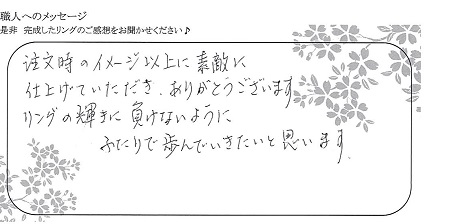 職人へのメッセージ
是非 完成したリングのご感想をお聞かせください♪
注文時のイメージ以上に素敵に
仕上げていただき、ありがとうございます
リングの輝きに負けないように
ふたりで歩んでいきたいと思います。